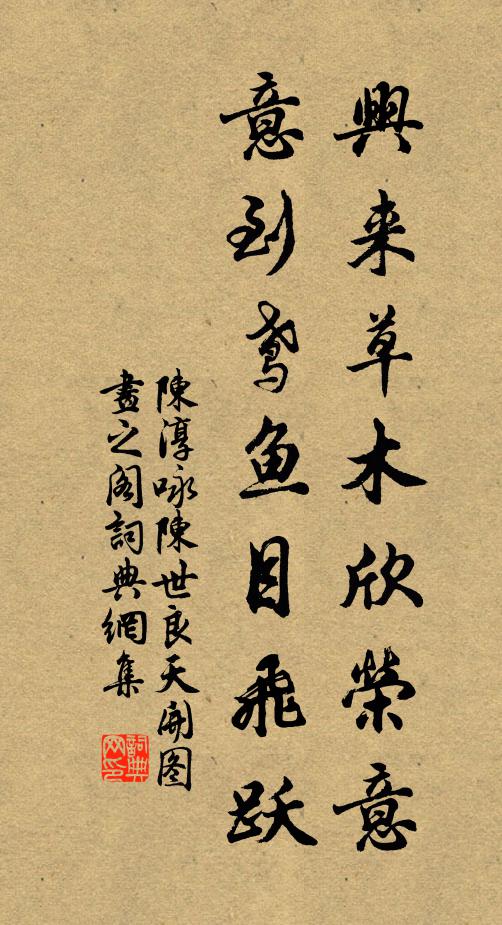 興来草木欣榮意
意到鸢鱼目飛跃
陳淳咏陳世良天開图
畫之阁詞典網集
詞典网印